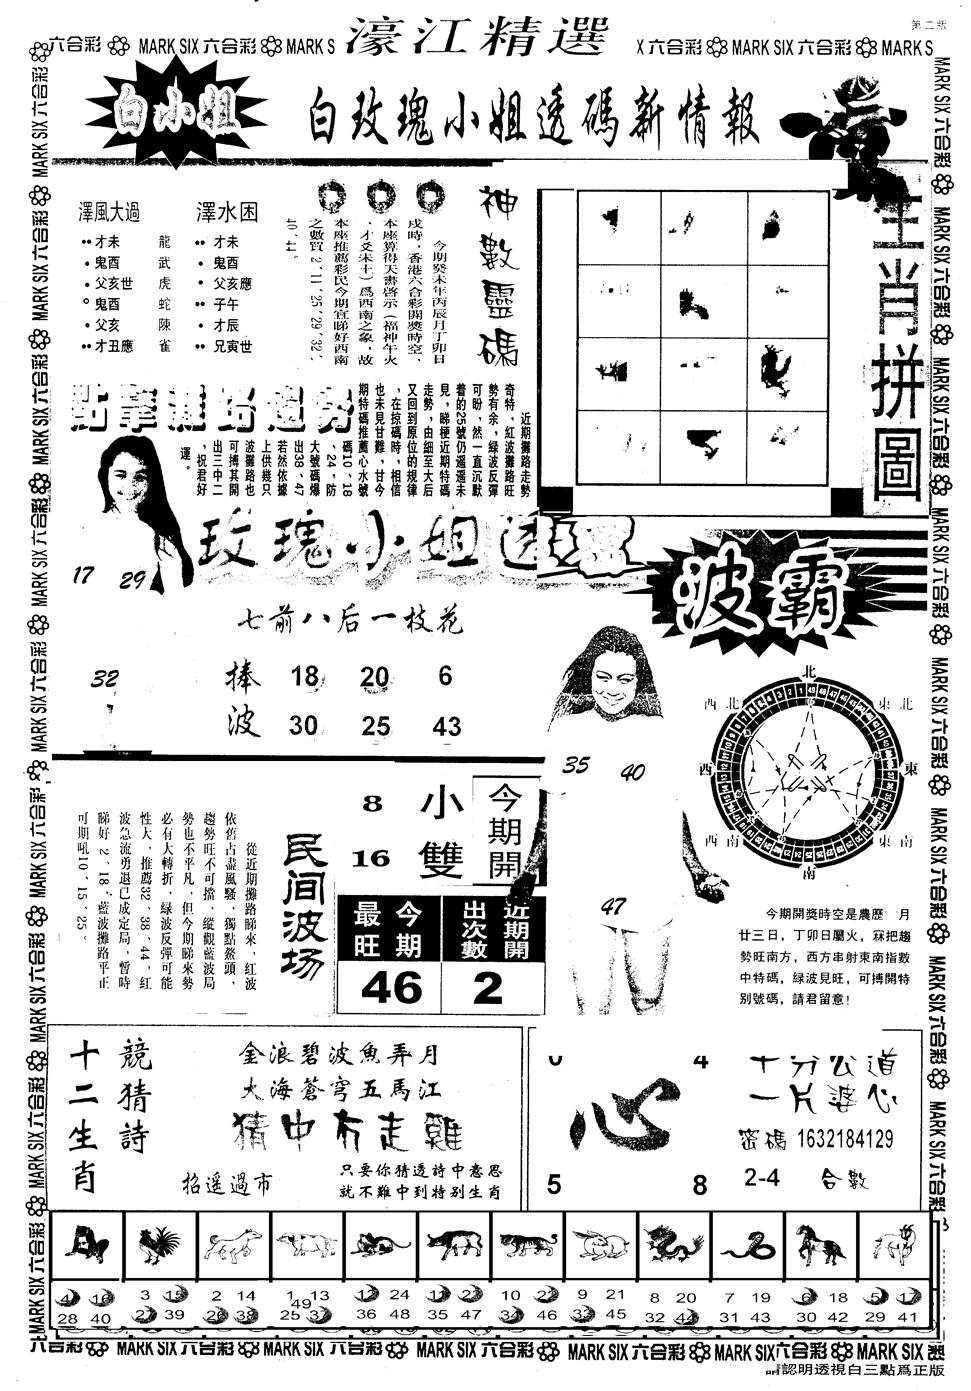 第二版
六合彩 MARK SIX 六合彩 MARK S
濠江精選
X 六合彩 MARK SIX 六合彩 MARK S
白小姐
白玫瑰小姐透碼新情報
澤風大過
才未 龍
鬼酉 武
父亥世 虎
鬼酉 蛇
父亥 陳
才丑應 雀
澤水困
才未
鬼酉
父亥應
子午
才辰
兄寅世
神數靈碼
今期癸未年丙辰月丁卯日
戌時，香港六合彩開獎時空，
本座算得天書啓示（福神午火
，才爻未土）爲西南之象，故
本座推薦彩民今期宜睇好西南
之數買2、11、25、29、32、
40、41。
生肖拼圖
點擊灘路趨勢
近期攤路走勢
奇特，紅波攤路旺
勢有余，綠波反彈
可盼，然一直沉默
着的25號仍遥遥未
見，睇梗近期特碼
走勢，由細至大后
又回到原位的規律
，在掠碼時，相信
也未見甘難，甘今
期特碼推薦心水號
碼10、18
、24，防
大號碼爆
出38、47
若然依據
上供幾只
波攤路也
可搏其開
出三中二
，祝君好
運。
玫瑰小姐透
17 29
32
七前八后一枝花
捧波
18 20 6
30 25 43
波霸
35 40
47
北
東北
東
東南
南
西南
西
西北
今期開獎時空是農歷 月
廿三日，丁卯日屬火，冧把趨
勢旺南方，西方串射東南指數
中特碼，緑波見旺，可搏開特
别號碼，請君留意！
民间波场
從近期攤路睇來，紅波
依舊占盡風騷，獨點鰲頭，
趨勢旺不可擋，縱觀藍波局
勢也不平凡，但今期睇來勢
必有大轉折，緑波反彈可能
性大，推薦32、38、44，紅
波急流勇退已成定局，暫時
睇好2、18，藍波攤路平正
可期吼10、15、25。
今期開
小雙
8
16
今期最旺
近期開出次數
46 2
十二生肖
競猜詩
金浪碧波魚弄月
大海蒼穹五馬江
猜中有走雞
招遥過市
只要你猜透詩中意思
就不難中到特别生肖
0 4
心
5 8
十分公道
一片婆心
密碼 1632184129
2-4 合數
4 16 28 40
3 15 27 39
2 14 26 38
1 13 49 25 37
12 24 36 48
11 23 35 47
10 22 34 46
9 21 33 45
8 20 32 44
7 19 31 43
6 18 30 42
5 17 29 41
六合彩 MARK SIX 六合彩 MARK SIX 六合彩 MARK SIX 六合彩 MARK SIX 六合彩 MARK SIX 六合彩 MARK SIX
請認明透視白三點爲正版